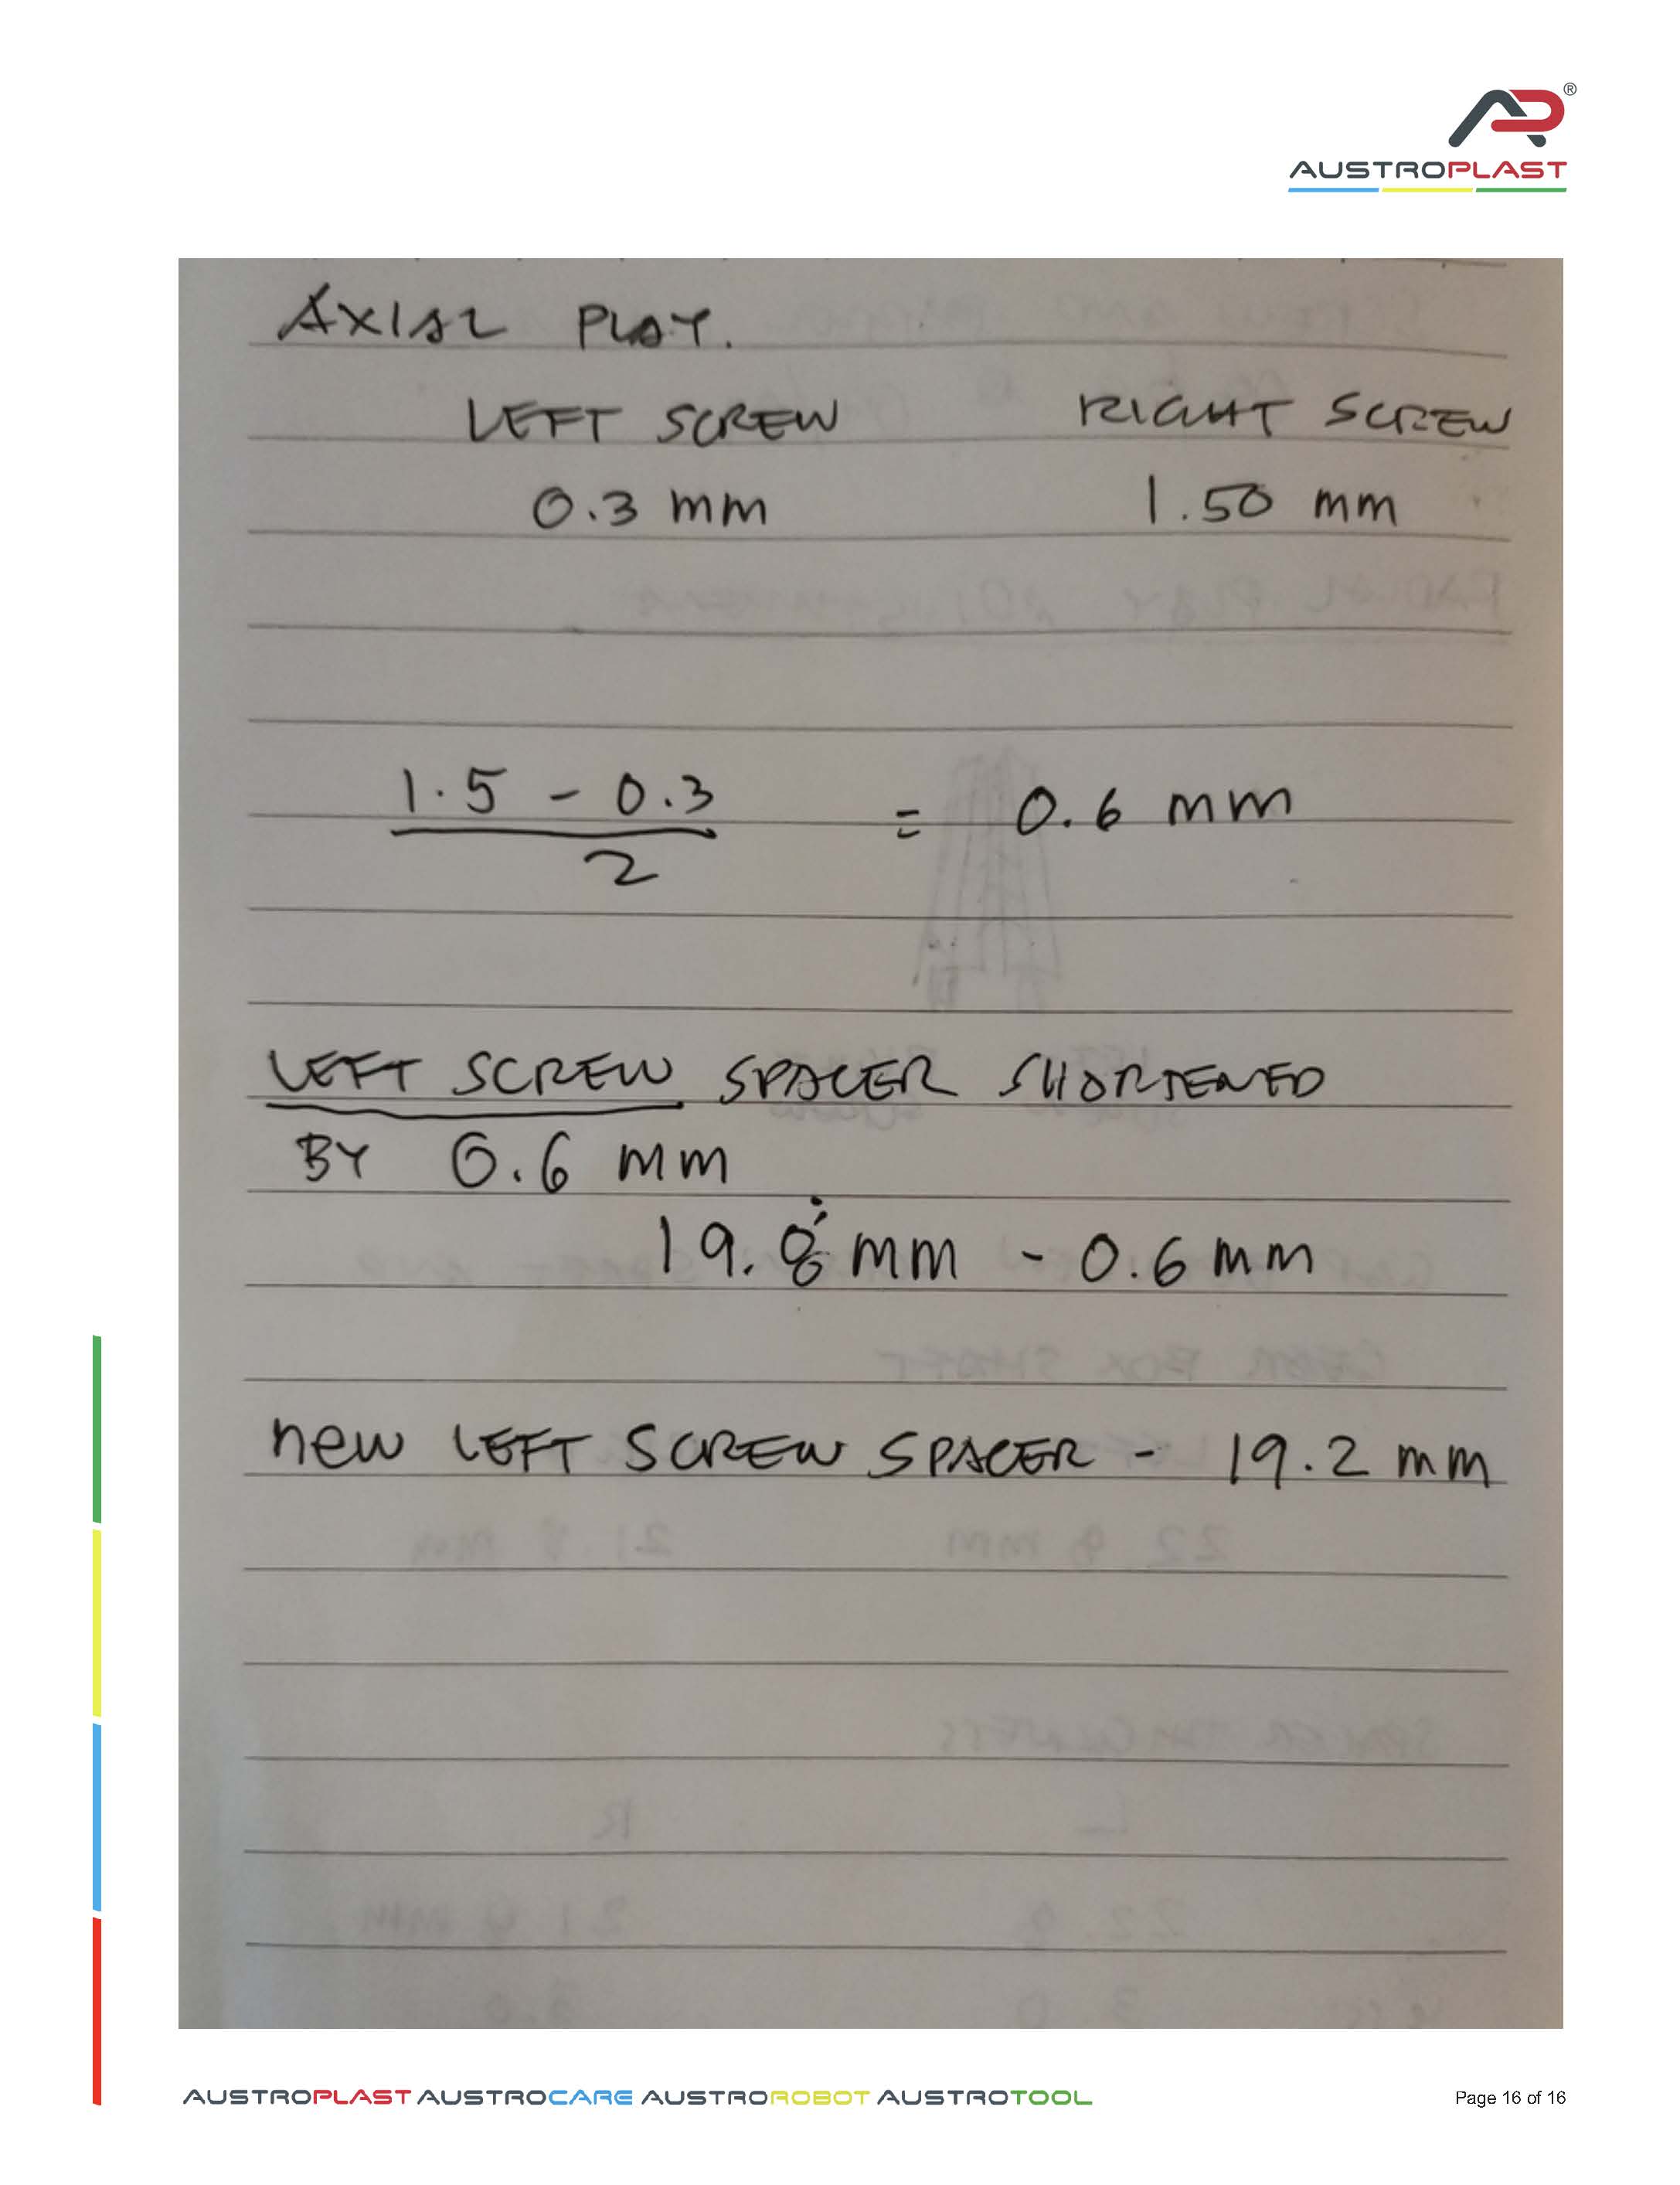 AUSTROPLAST
AXIAL PLAY.
LEFT SCREW RIGHT SCREW
0.3 mm 1.50 mm
1.5 - 0.3
2
= 0.6 mm
LEFT SCREW SPACER SHORTENED
BY 0.6 mm
19.8 mm - 0.6 mm
new LEFT SCREW SPACER - 19.2 mm
AUSTROPLAST AUSTROCARE AUSTROROBOT AUSTROTOOL
Page 16 of 16